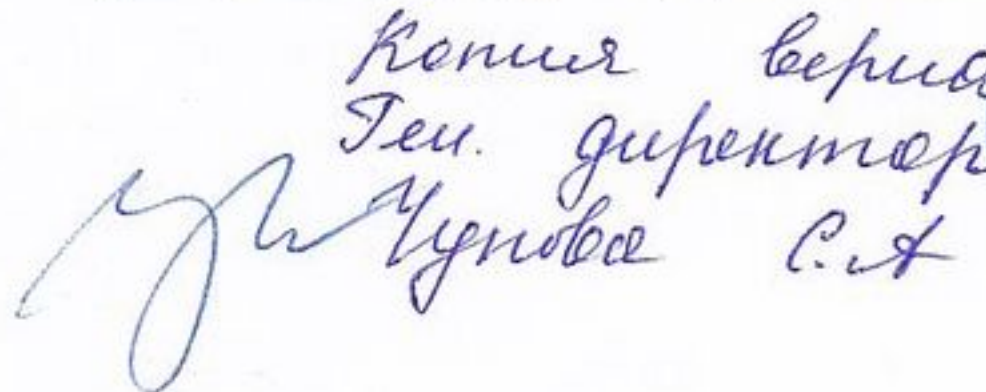 Копия верна
Ген. директор
Чупова С.А